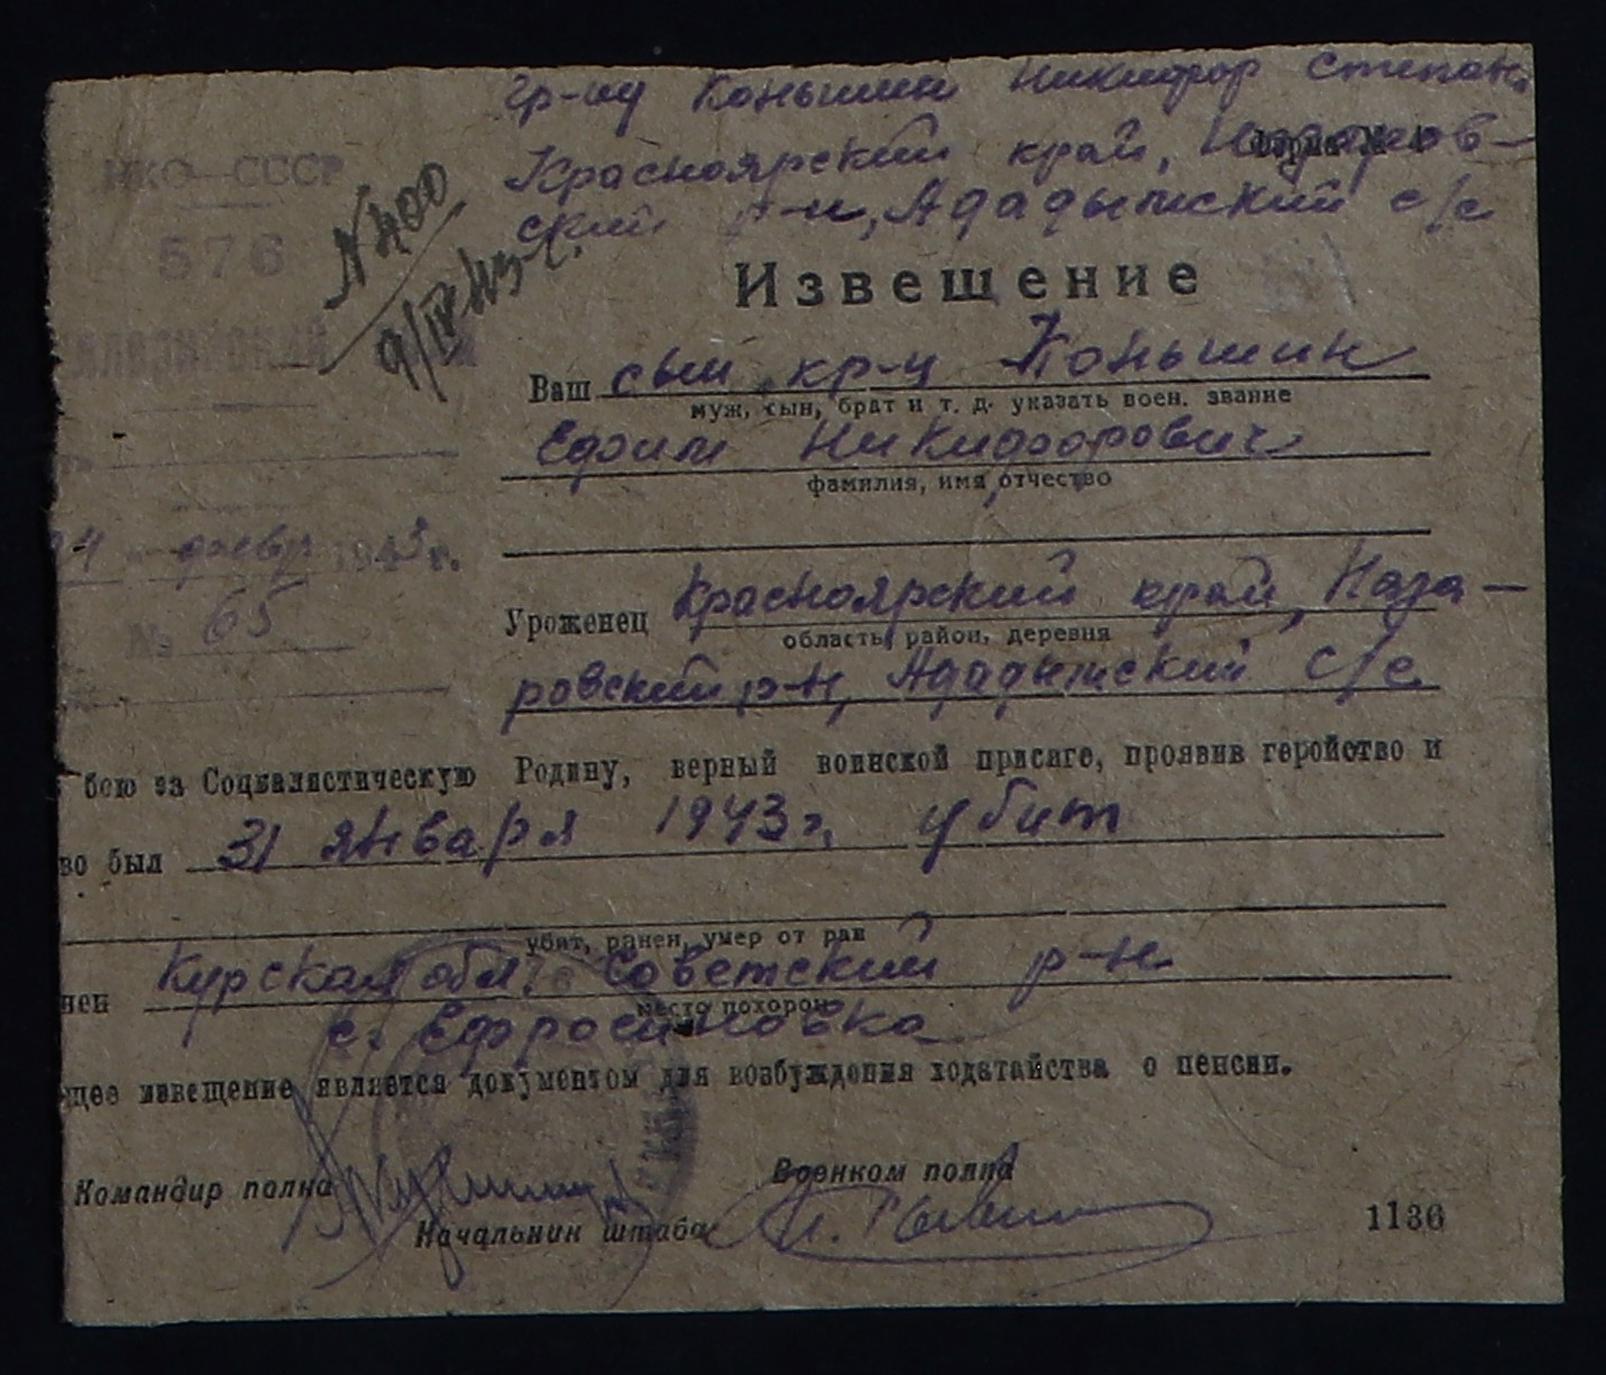 гр-ну Коньшин Никифор Степан.
Красноярский край, Назаров-
ский р-н, Ададымский с/с
НКО—СССР
576
№ 400
9/IV-43 г.
Извещение
Ваш сын, кр-ц Коньшин
муж, сын, брат и т. д. указать воен. звание
Ефим Никифорович
фамилия, имя, отчество
24 " февр 1943 г.
№ 65
Уроженец Красноярский край, Наза-
область, район, деревня
ровский р-н, Ададымский с/с
бою за Социалистическую Родину, верный воинской присяге, проявив геройство и
во был 31 января 1943 г. убит
убит, ранен, умер от ран
нен Курская обл. Советский р-н
место похорон
с. Ефросиновка
щее извещение является документом для возбуждения ходатайства о пенсии.
Командир полка
Военком полка
Начальник штаба
1136